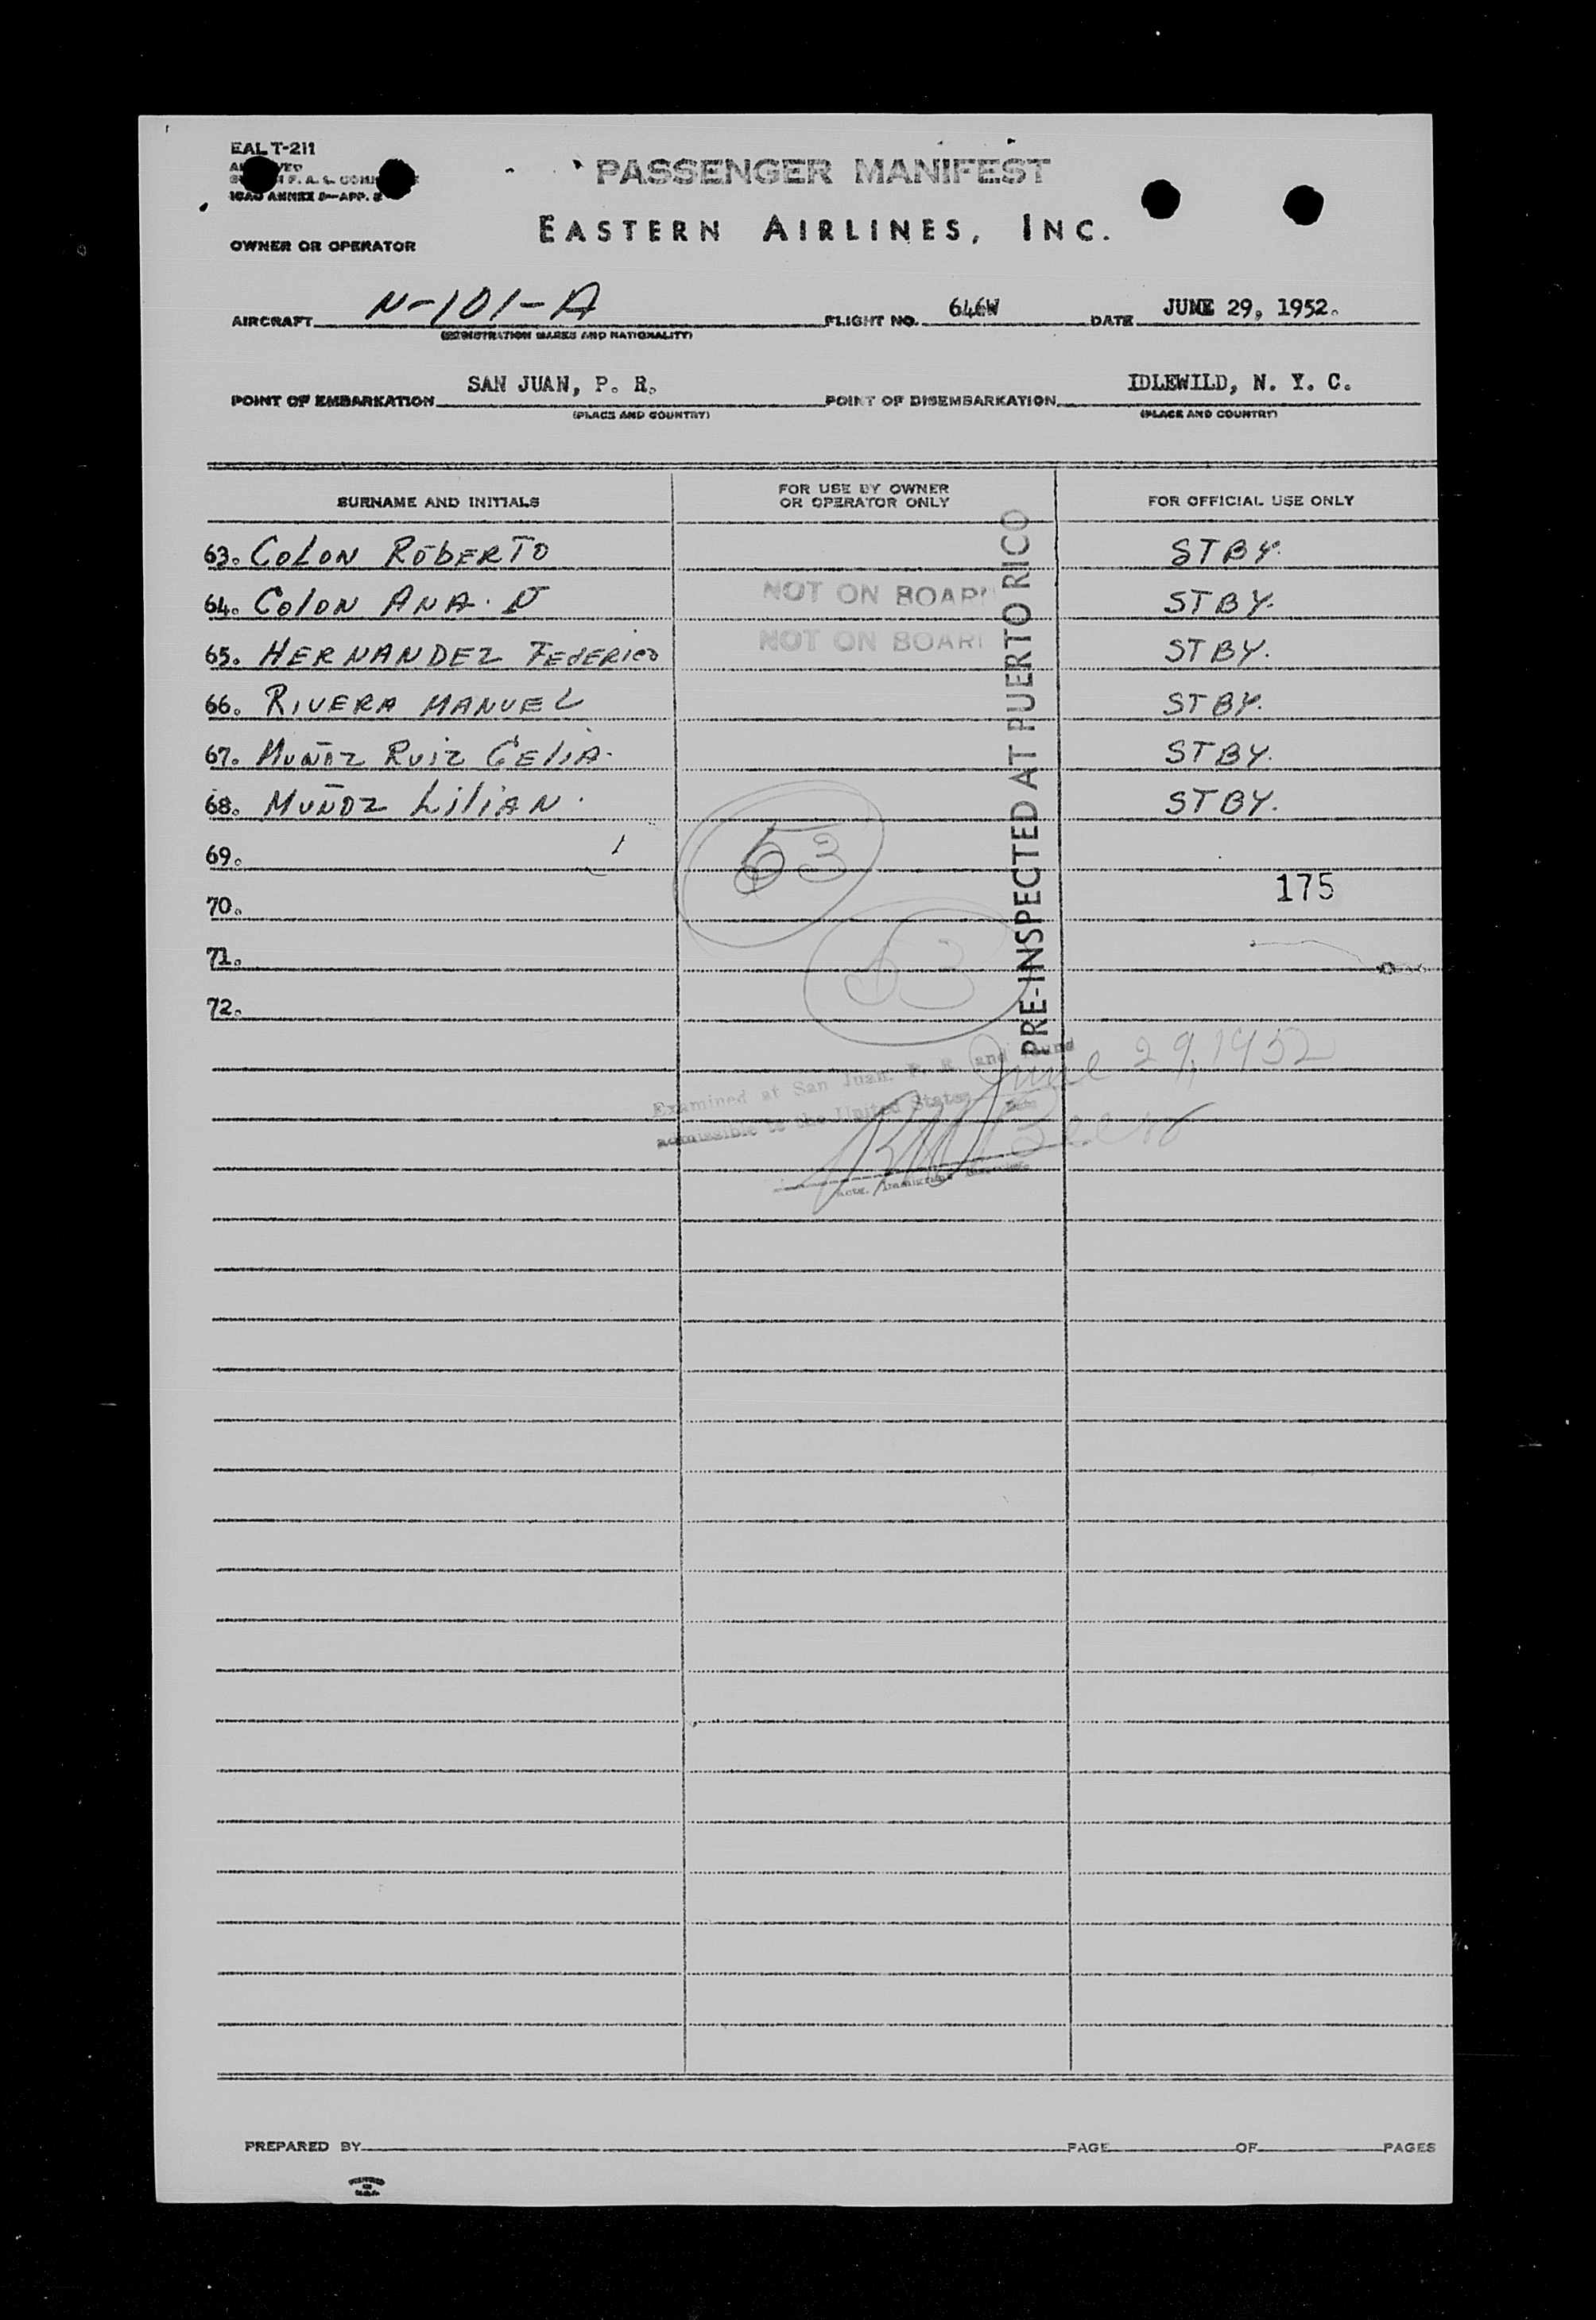 EAL T-211
PASSENGER MANIFEST
F. A. L.
ICAO ANNEX 9—APP.
EASTERN AIRLINES, INC.
OWNER OR OPERATOR
AIRCRAFT N-101-A FLIGHT NO. 646W DATE JUNE 29, 1952.
(REGISTRATION MARKS AND NATIONALITY)
POINT OF EMBARKATION SAN JUAN, P. R. POINT OF DISEMBARKATION IDLEWILD, N. Y. C.
(PLACE AND COUNTRY) (PLACE AND COUNTRY)
SURNAME AND INITIALS FOR USE BY OWNER OR OPERATOR ONLY FOR OFFICIAL USE ONLY
63. COLON ROBERTO STBY.
64. COLON ANA. D NOT ON BOARD STBY.
65. HERNANDEZ FEDERICO NOT ON BOARD STBY.
66. RIVERA MANUEL STBY.
67. MUÑOZ RUIZ CELIA. STBY.
68. MUÑOZ LILIAN. STBY.
69. 63
70. 175
71. 63
72.
PRE-INSPECTED AT PUERTO RICO
Examined at San Juan, P. R. and found
June 29, 1952
admissible to the United States
Date
PREPARED BY PAGE OF PAGES